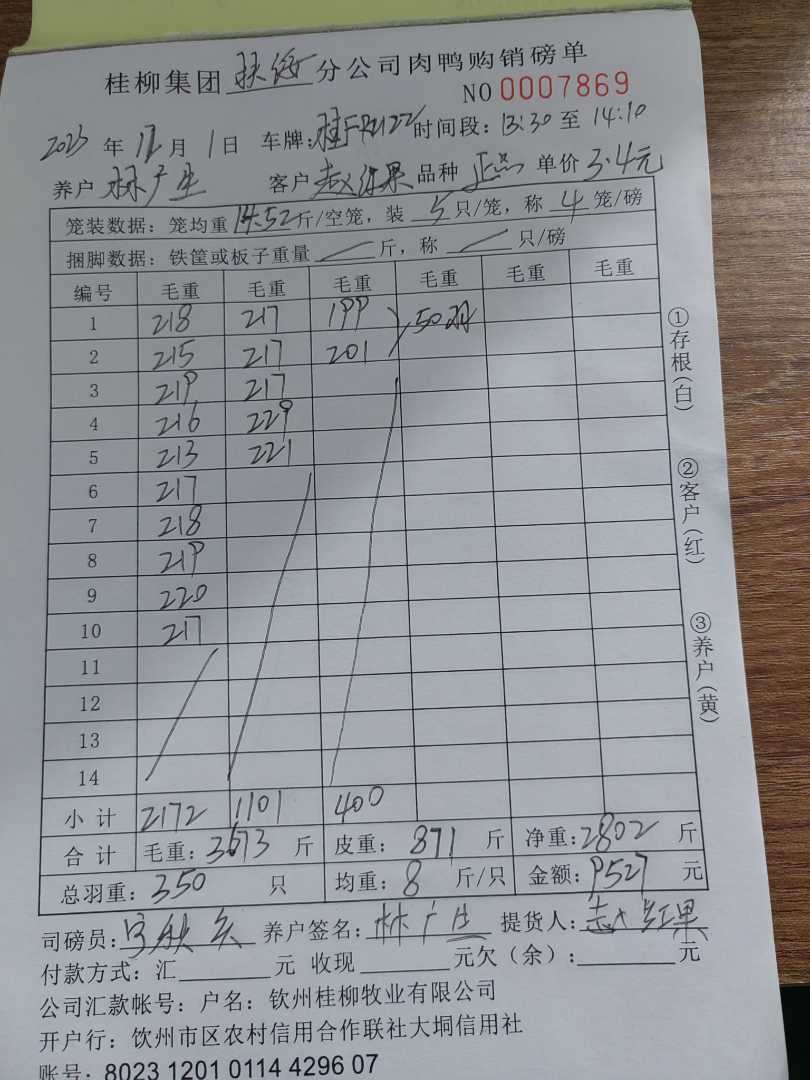 桂柳集团扶绥分公司肉鸭购销磅单
NO 0007869
2023年12月1日 车牌:桂FR2122 时间段:13:30至14:10
养户 林广生 客户 红果 品种 正品 单价3.4元
笼装数据:笼均重14.52斤/空笼,装5只/笼,称4笼/磅
捆脚数据:铁筐或板子重量 斤,称 只/磅
编号 毛重 毛重 毛重 毛重 毛重 毛重
1 218 217 199 50羽
2 215 217 201
3 219 217
4 216 229
5 213 221
6 217
7 218
8 219
9 220
10 217
11
12
13
14
小计 2172 1101 400
合计 毛重:3673斤 皮重:871斤 净重:2802斤
总羽重:350只 均重:8斤/只 金额:9527元
司磅员: 养户签名:林广生 提货人:红果
付款方式:汇 元 收现 元欠(余): 元
公司汇款帐号:户名:钦州桂柳牧业有限公司
开户行:饮州市区农村信用合作联社大垌信用社
账号:8023 1201 0114 4296 07
①存根(白)
②客户(红)
③养户(黄)